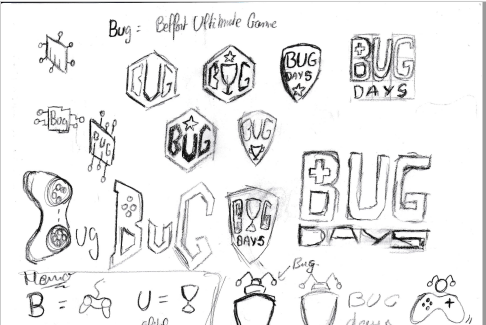 Bug = Belfort Ultimate Game
BUG
BUG
BUG
DAYS
BUG
DAYS
Bug
BUG
BUG
BUG
BUG
DAYS
Bug
BUG
BUG
DAYS
Bug
B =
U =
BUG
days